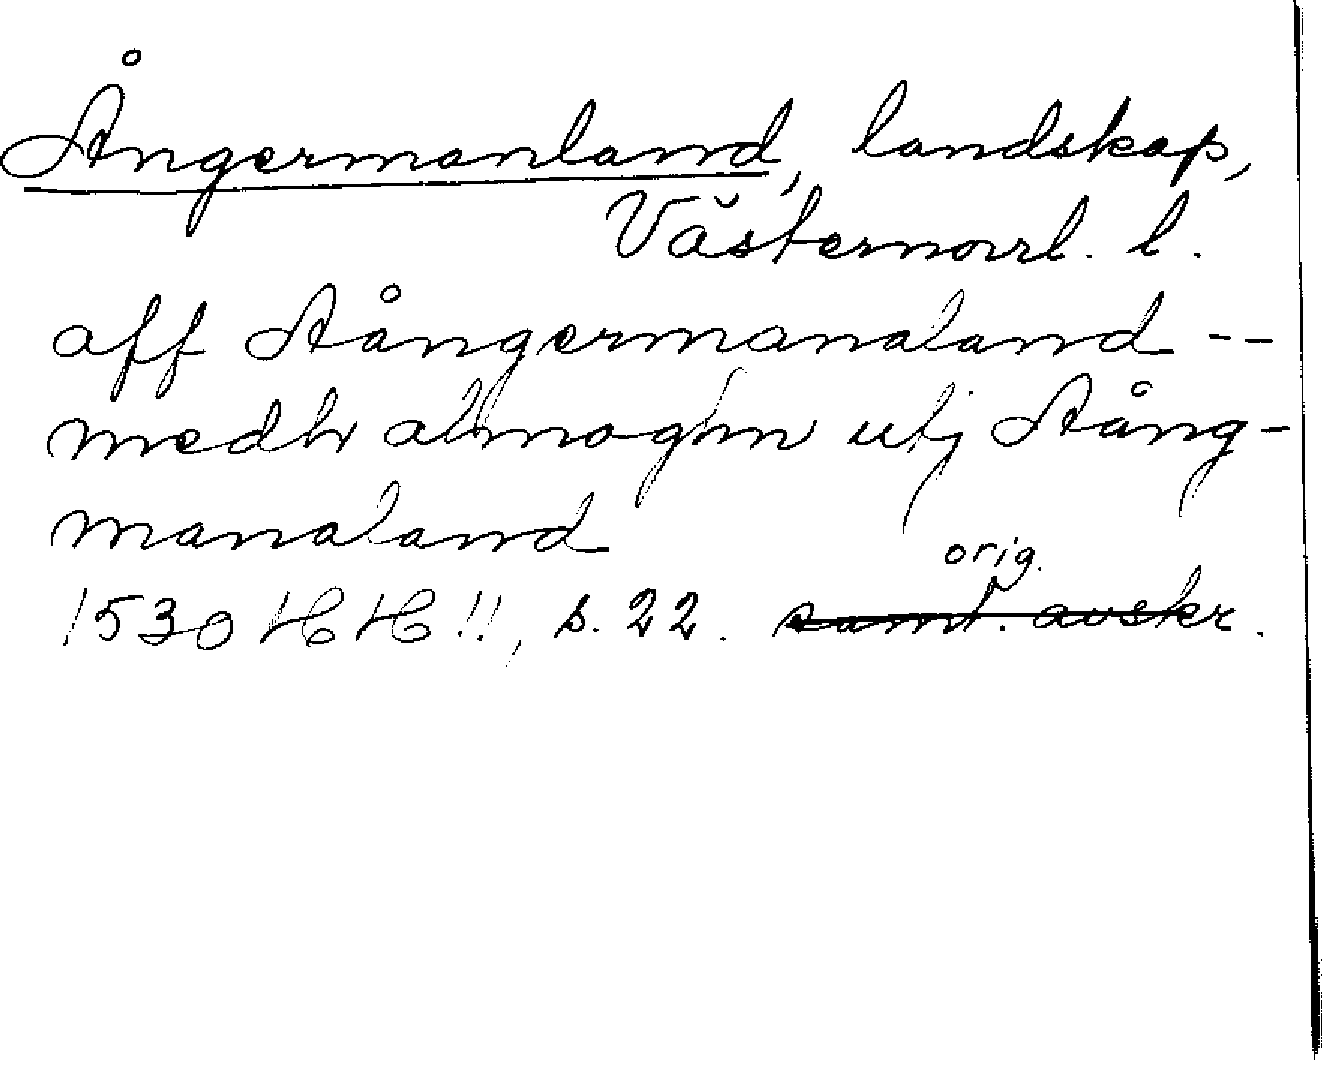 Ångermanland, landskap,
Västernorrl. l.
aff Aångermanaland --
medh almoghn utj Aång-
manaland
orig.
1530 HH !!, s. 22. samt. avskr.